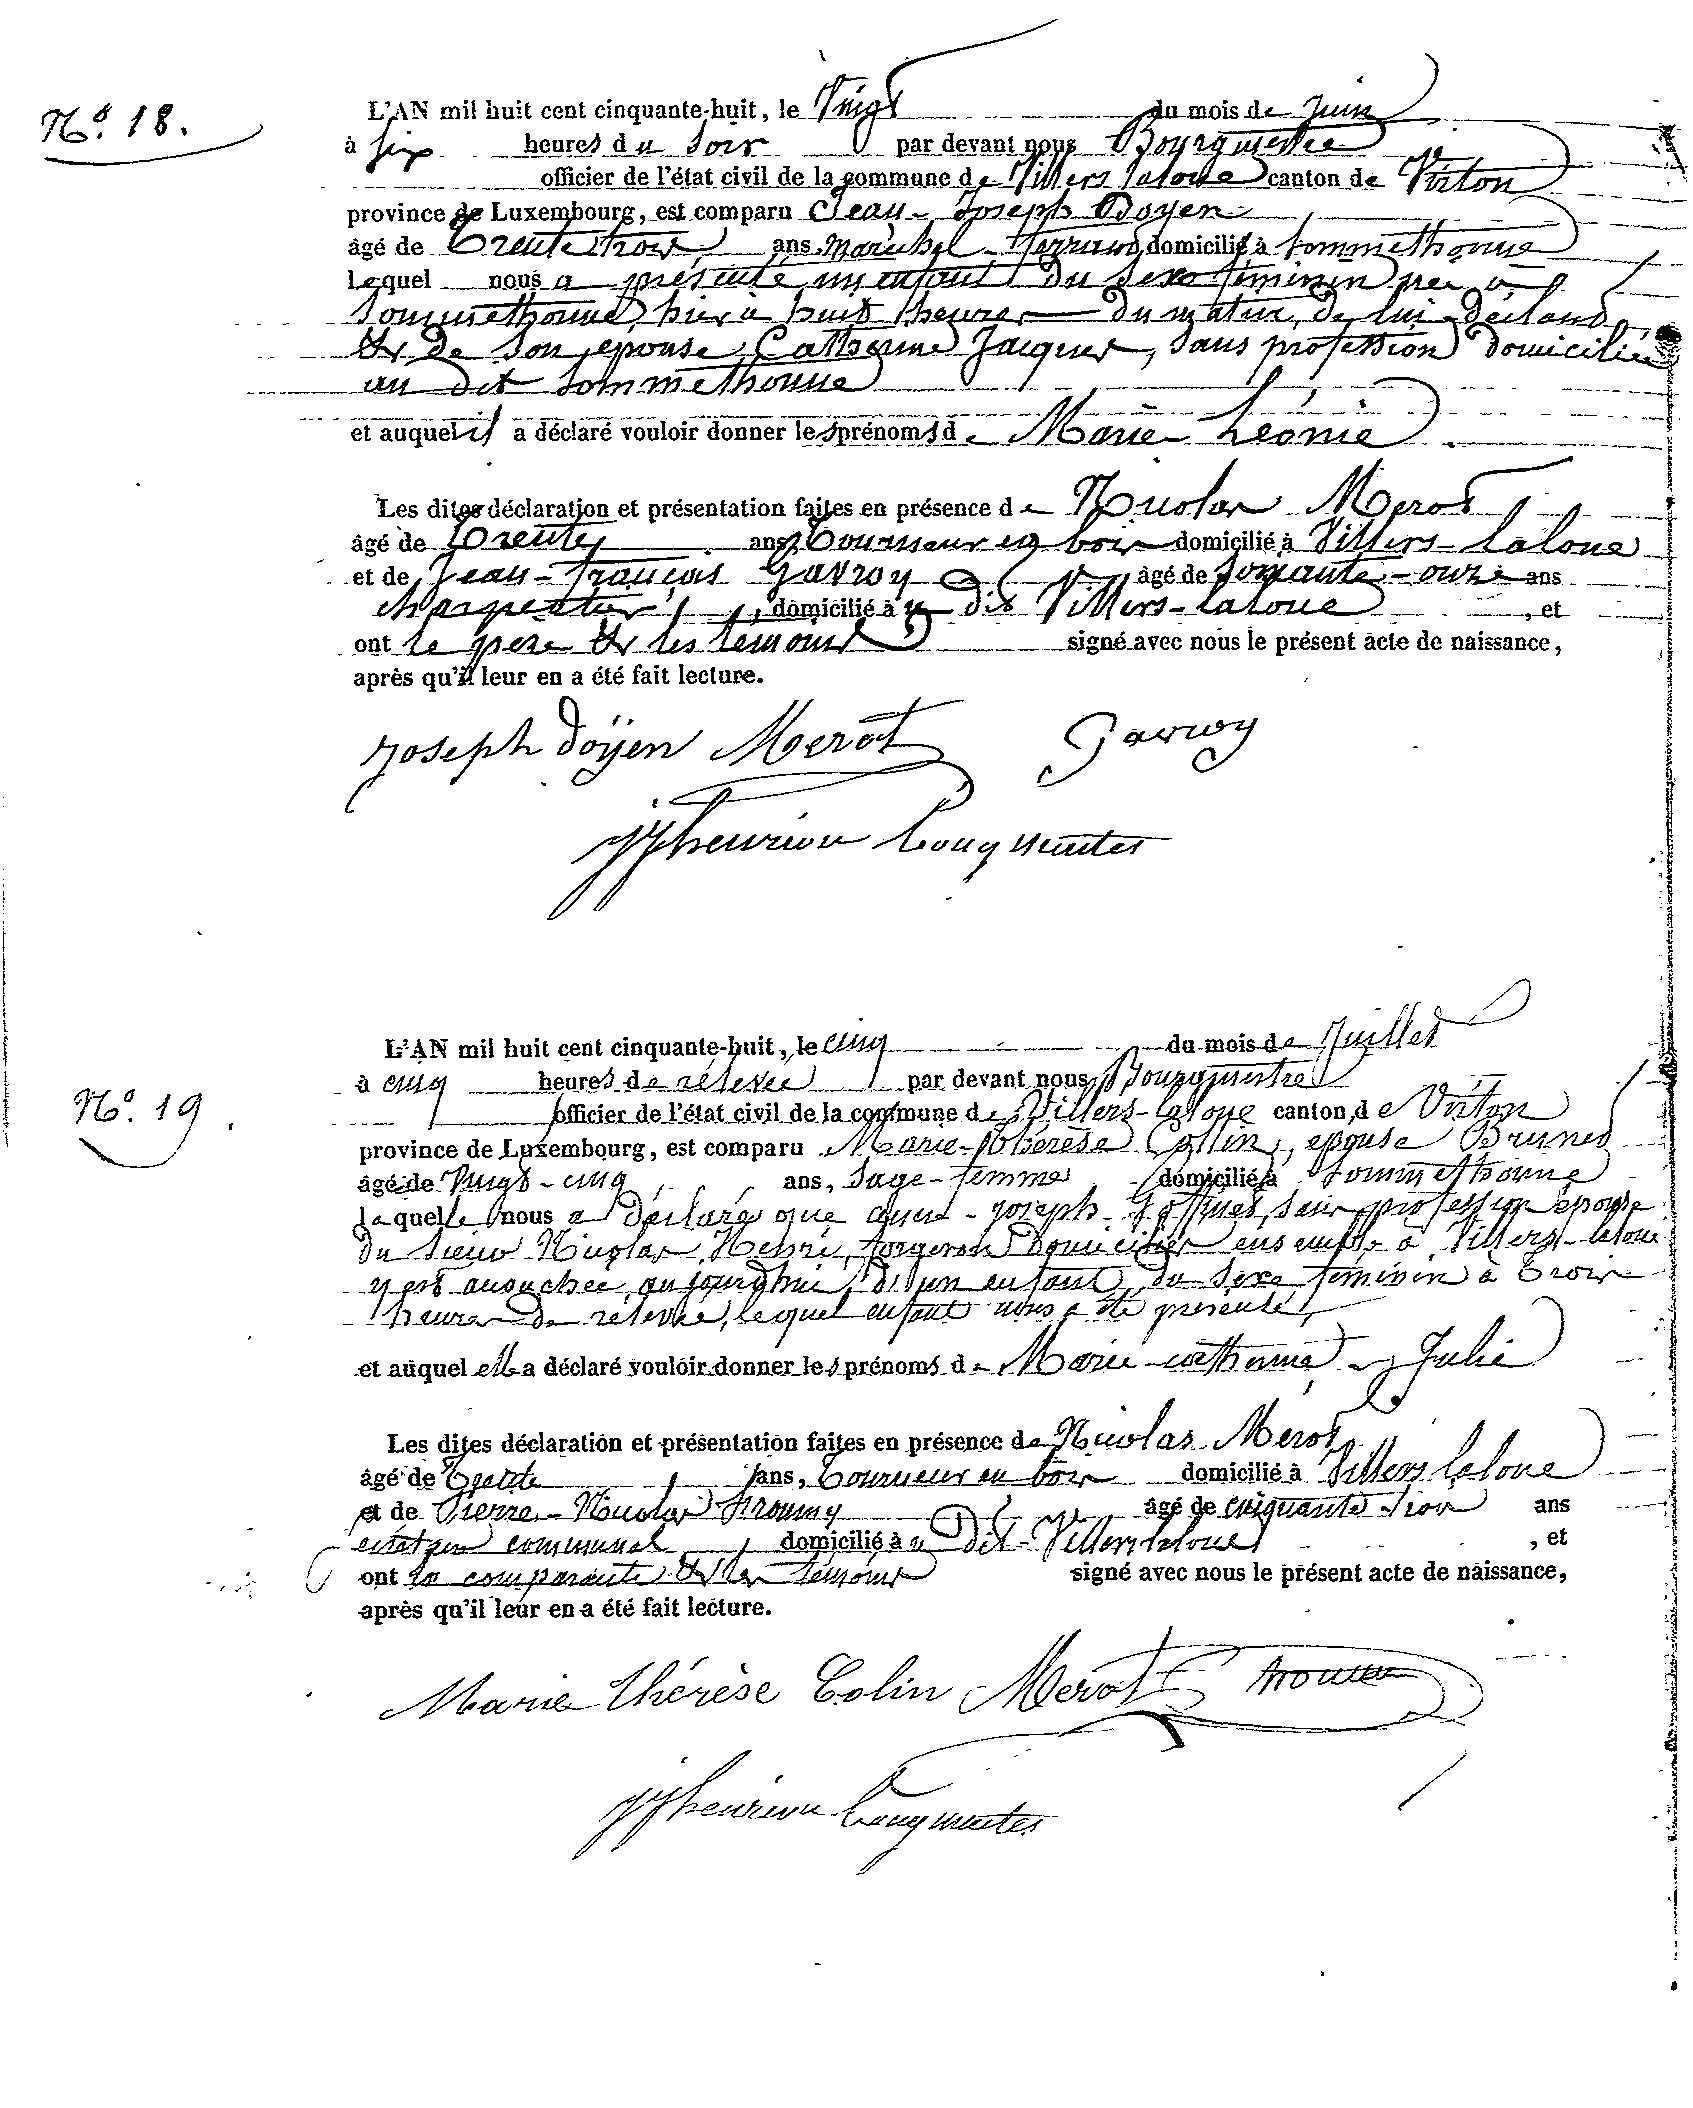 N.º 18.
L'AN mil huit cent cinquante-huit, le Vingt du mois de Juin
à six heures du soir par devant nous Bourgmestre
officier de l'état civil de la commune de Villers laloue canton de Virton
province de Luxembourg, est comparu Jean-Joseph Doyen
âgé de Trente trois ans, maréchal-ferrant domicilié à Sommethonne
lequel nous a présenté un enfant du sexe féminin née à
Sommethonne, hier à huit heures du matin, de lui déclarant
& de son épouse Catherine Jacques, sans profession domiciliée
au dit Sommethonne
et auquel il a déclaré vouloir donner les prénoms de Marie Léonie
Les dites déclaration et présentation faites en présence de Nicolas Merot
âgé de Trente ans, Tourneur en bois domicilié à Villers-laloue
et de Jean-François Gavroy âgé de soixante-onze ans
charpentier, domicilié à u dit Villers-laloue, et
ont le père & les témoins signé avec nous le présent acte de naissance,
après qu'il leur en a été fait lecture.
Joseph doÿen Merot Gavroy
JJ henrion bourgmestre
N.º 19.
L'AN mil huit cent cinquante-huit, le cinq du mois de Juillet
à cinq heures de rélevée par devant nous Bourgmestre
officier de l'état civil de la commune de Villers-laloue canton de Virton
province de Luxembourg, est comparu Marie-Thérèse Collin, épouse Brunet
âgé de Vingt-cinq ans, sage-femme domicilié à Sommethonne
laquelle nous a déclaré que anne-joseph- sans profession épouse
du sieur Nicolas Henri, forgeron domicilier ensemble à Villers-laloue
y est acouchée aujourdhui, d'un enfant du sexe féminin à trois
heures de rélevée, lequel enfant nous a été présenté,
et auquel elle a déclaré vouloir donner les prénoms de Marie-catherine Julie
Les dites déclaration et présentation faites en présence de Nicolas Merot
âgé de Trente ans, Tourneur en bois domicilié à Villers laloue
et de Pierre-Nicolas âgé de cinquante-six ans
communal domicilié à u Dit-Villers laloue, et
ont la comparante & les témoins signé avec nous le présent acte de naissance,
après qu'il leur en a été fait lecture.
Marie thérèse Colin Merot
JJ henrion bourgmestre